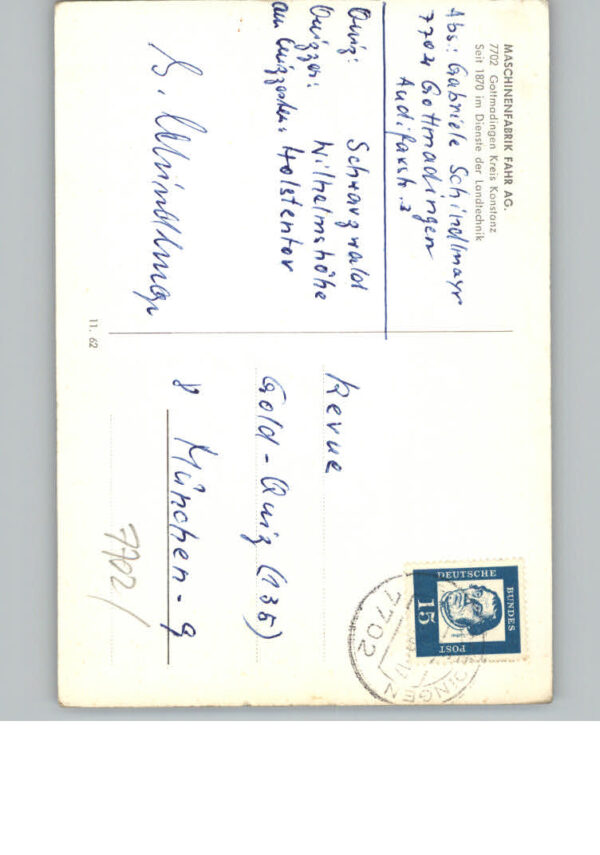 MASCHINENFABRIK FAHR AG.
7702 Gottmadingen Kreis Konstanz
Seit 1870 im Dienste der Landtechnik
Abs: Gabriele Schindlmayr
7702 Gottmadingen
Audifaxstr. 3
Quiz: Schwarzwald
Quizzer: Wilhelmshöhe
am Quizzesten: Holstentor
G. Schindlmayr
11. 62
DEUTSCHE
BUNDES
POST
15
7702
DINGEN
Revue
Gold-Quiz (135)
8 München-9
7702/